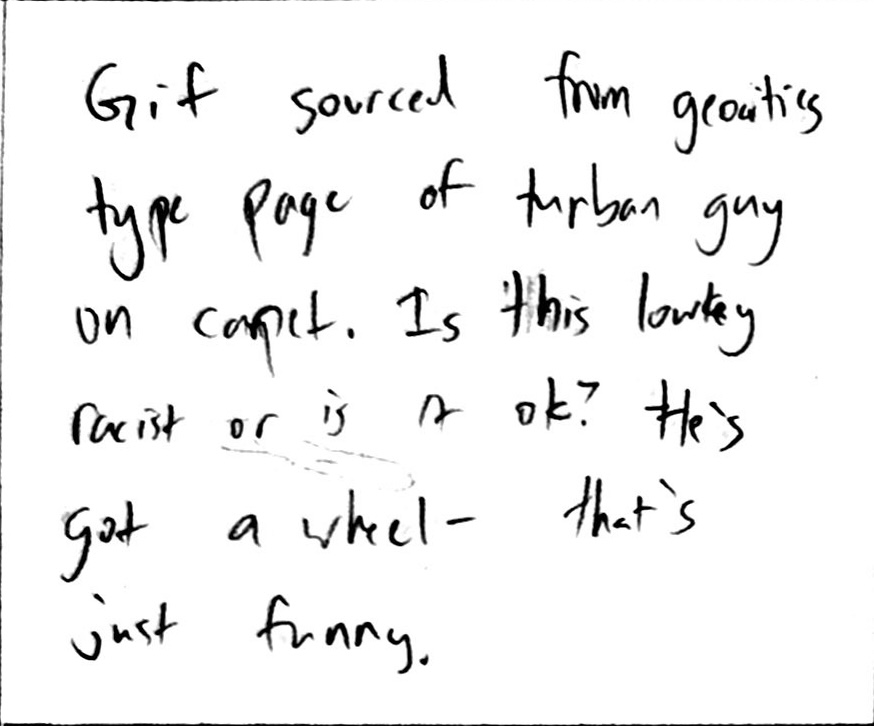 Gif sourced from geocities
type page of turban guy
on carpet. Is this lowkey
racist or is it ok? He's
got a wheel- that's
just funny.